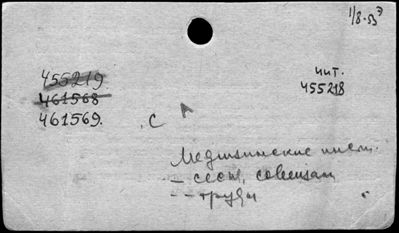 1/8-53
455219
461568
461569.
чит.
455218
С А
Медицинские инст.
– сесс. совещан
– – труды